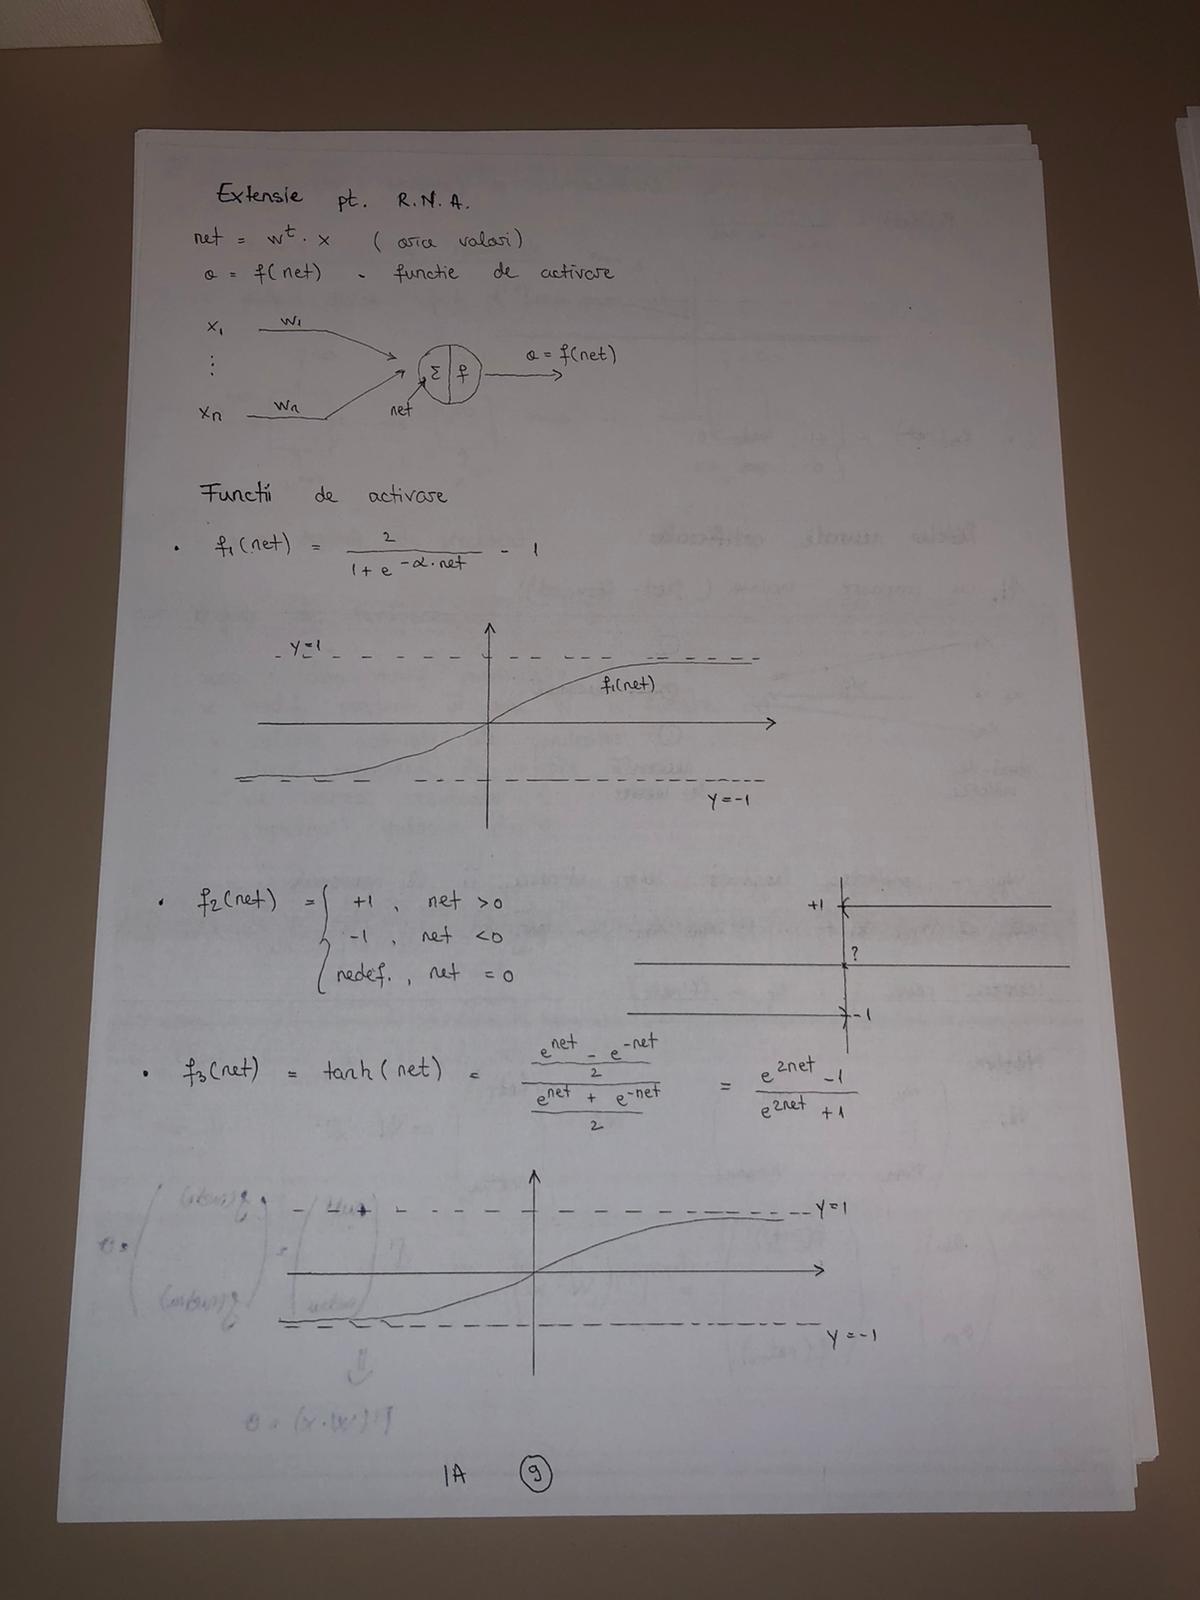 Extensie pt. R.N.A.
net = w^t · x (orice valori)
o = f(net) - functie de activare
x₁ w₁
⋮
Σ f o = f(net)
xn wn net
Functii de activare
• f₁(net) = 2 / (1 + e^(-α·net)) - 1
y=1
f₁(net)
y=-1
• f₂(net) = { +1, net >0
-1, net <0
nedef., net = 0
+1
?
-1
• f₃(net) = tanh(net) = ((e^net - e^-net)/2) / ((e^net + e^-net)/2) = (e^2net -1) / (e^2net +1)
y=1
y=-1
IA 9